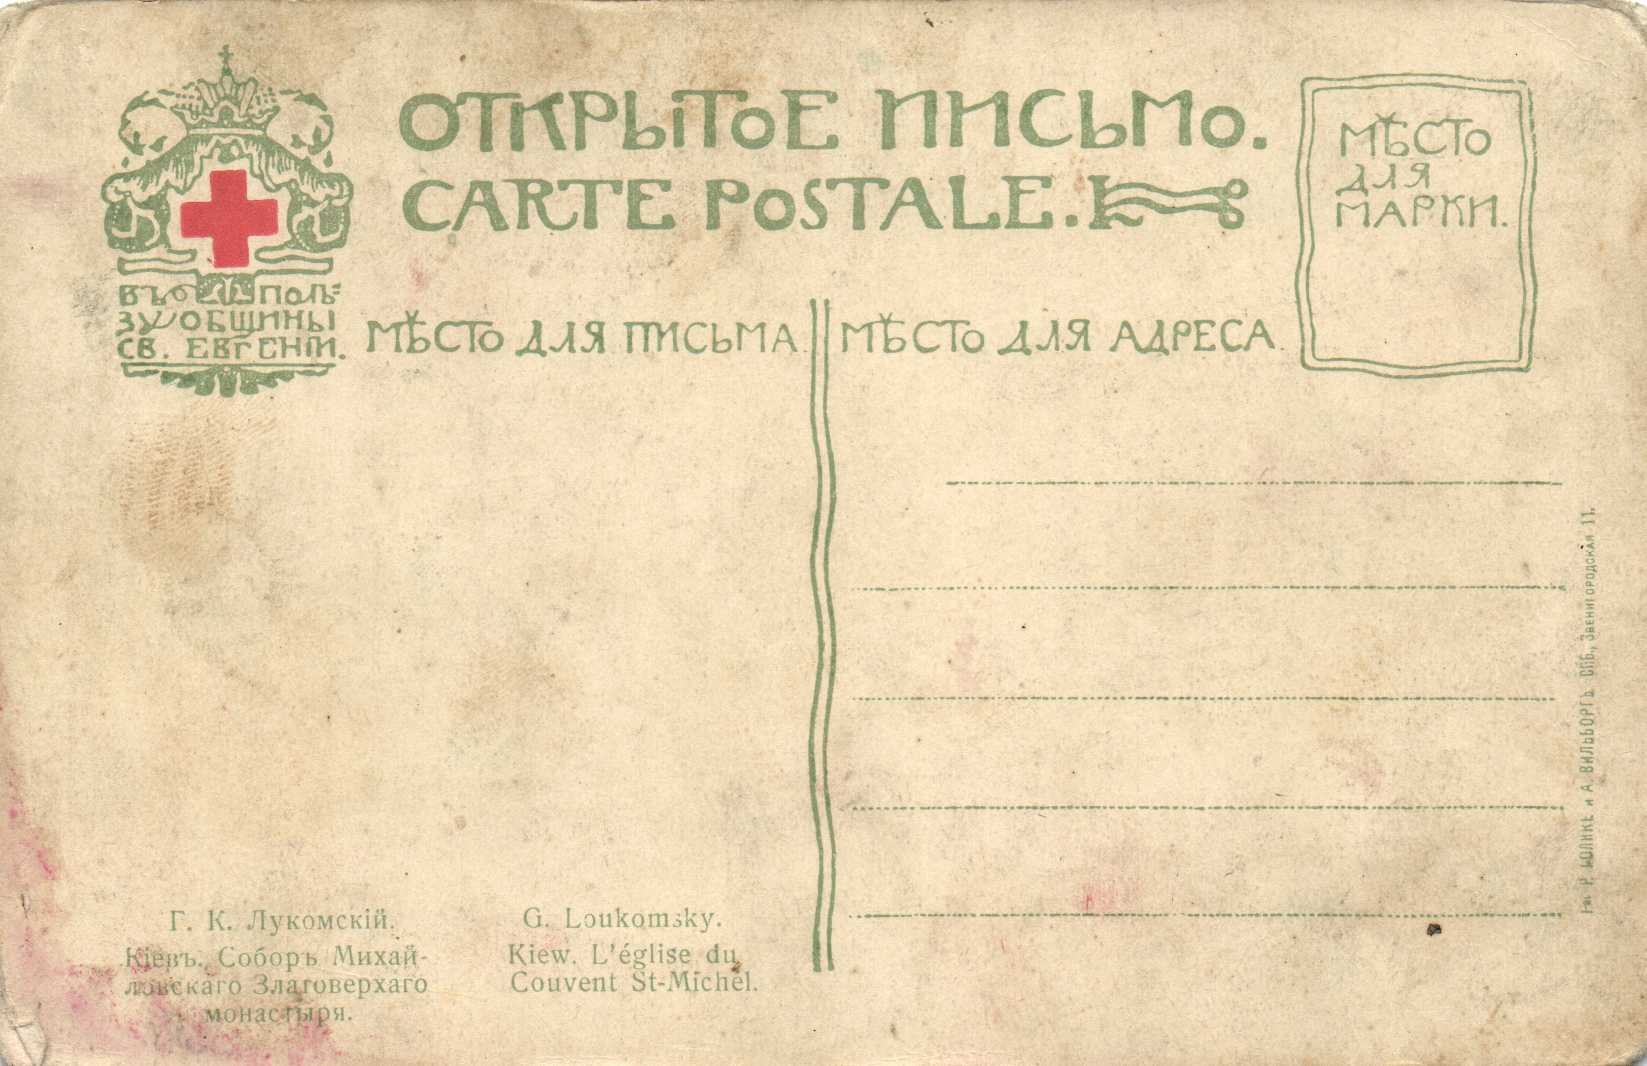 ОТКРЫТОЕ ПИСЬМО.
CARTE POSTALE.
МѢСТО
ДЛЯ
МАРКИ.
ВЪ ПОЛЬ=
ЗУ ОБЩИНЫ
СВ. ЕВГЕНІИ.
МѢСТО ДЛЯ ПИСЬМА
МѢСТО ДЛЯ АДРЕСА
Г. К. Лукомскій.
Кіевъ. Соборъ Михай-
ловскаго Златоверхаго
монастыря.
G. Loukomsky.
Kiew. L'église du
Couvent St-Michel.
Р. ГОЛИКЕ и А. ВИЛЬБОРГЪ. СПБ., ЗВЕНИГОРОДСКАЯ 11.